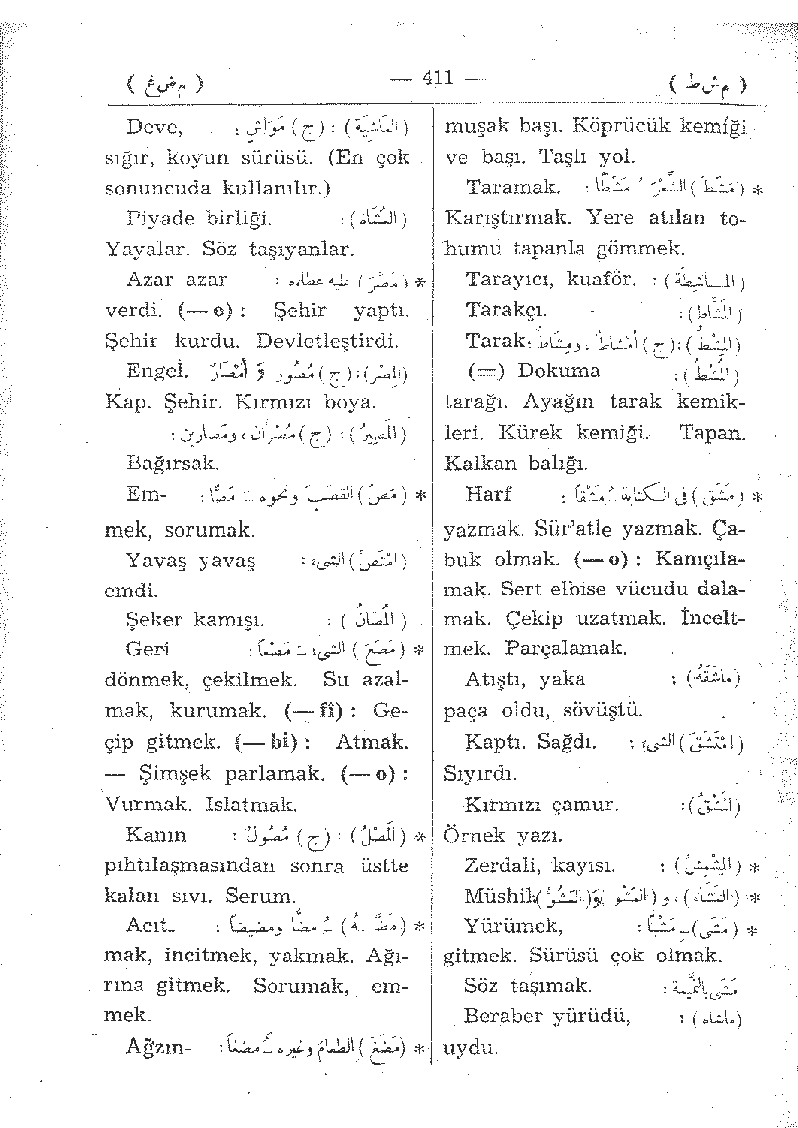 ( مشط ) — 411 — ( مضغ )
muşak başı. Köprücük kemiği
ve başı. Taşlı yol.
* (مَشَطَ) الشَّعْرَ ُ مَشْطاً : Taramak.
Karıştırmak. Yere atılan to-
humu tapanla gömmek.
(الماشِطَة) : Tarayıcı, kuaför.
(المَشَّاط) : Tarakçı.
(المُشْط) : (ج) أَمْشاط، ومِشاط : Tarak.
(المُشْط) : (=) Dokuma
tarağı. Ayağın tarak kemik-
leri. Kürek kemiği. Tapan.
Kalkan balığı.
* (مَشَقَ) في الكتابة ُ مَشْقاً : Harf
yazmak. Sür'atle yazmak. Ça-
buk olmak. (— o) : Kamçıla-
mak. Sert elbise vücudu dala-
mak. Çekip uzatmak. İncelt-
mek. Parçalamak.
(ماشَقَهُ) : Atıştı, yaka
paça oldu, sövüştü.
(امْتَشَقَ) الشيءَ : Kaptı. Sağdı.
Sıyırdı.
(المِشْق) : Kırmızı çamur.
Örnek yazı.
* (المِشْمِش) : Zerdali, kayısı.
* (المَشاء) ، و (المَشْو) Müshil
* (مَشَى) ِ مَشْياً : Yürümek,
gitmek. Sürüsü çok olmak.
مَشَى بالنَّمِيمة : Söz taşımak.
(ماشاه) : Beraber yürüdü,
uydu.
(الماشِيَة) : (ج) مَوَاشٍ : Deve,
sığır, koyun sürüsü. (En çok
sonuncuda kullanılır.)
(المُشَاة) : Piyade birliği.
Yayalar. Söz taşıyanlar.
* (مَصَّرَ) عليه عطاءه : Azar azar
verdi. (— o) : Şehir yaptı.
Şehir kurdu. Devletleştirdi.
(المِصْر) : (ج) مُصُور و أَمْصَارٌ Engel.
Kap. Şehir. Kırmızı boya.
(المَصِير) : (ج) مُصْرَان ، ومَصارين :
Bağırsak.
* (مَصَّ) القصَبَ ونحوه َ مَصّاً : Em-
mek, sorumak.
(امْتَصَّ) الشيءَ : Yavaş yavaş
emdi.
(المَصَّان) : Şeker kamışı.
* (مَصَعَ) الشيءُ َ مَصْعاً : Geri
dönmek, çekilmek. Su azal-
mak, kurumak. (— fî) : Ge-
çip gitmek. (— bi) : Atmak.
— Şimşek parlamak. (— o) :
Vurmak. Islatmak.
* (المَصْل) : (ج) مُصُولٌ : Kanın
pıhtılaşmasından sonra üstte
kalan sıvı. Serum.
* (مَضَّهُ) ُ مَضّاً ومَضيضاً : Acıt-
mak, incitmek, yakmak. Ağı-
rına gitmek. Sorumak, em-
mek.
* (مَضَغَ) الطعامَ وغيره َ مَضْغاً : Ağzın-